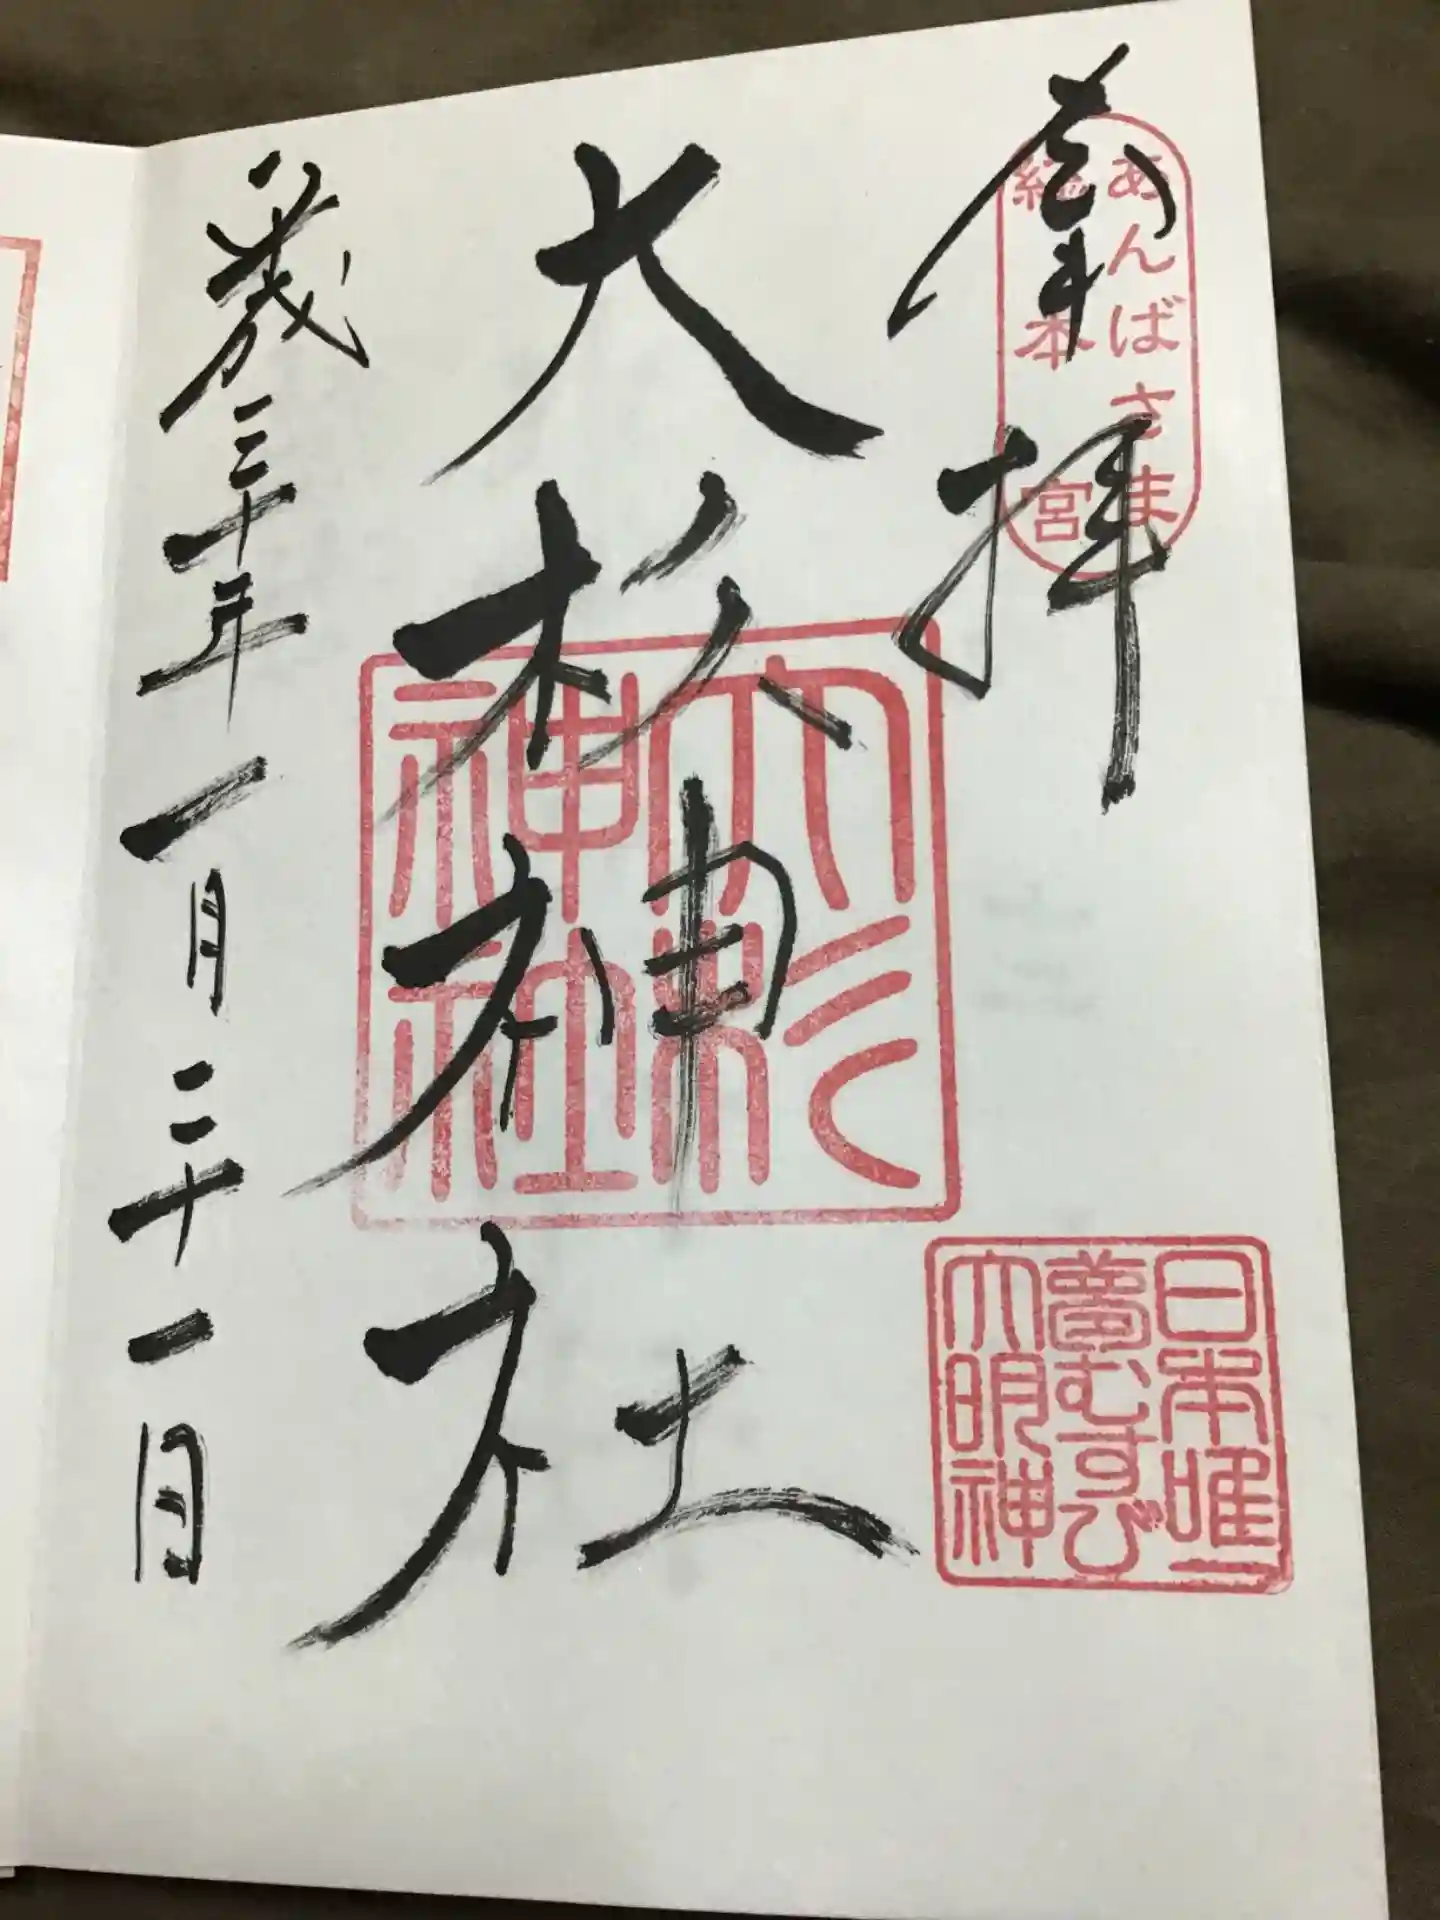 奉拝
あんばさま
総本宮
大杉神社
大杉
神社
日本唯一
夢むすび
大明神
歳三十年一月二十一日